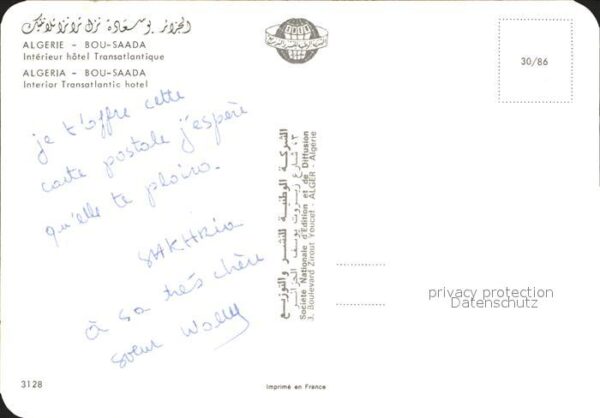 الجزائر بوسعادة نزل ترانزاتلانتيك
ALGERIE - BOU-SAADA
Intérieur hôtel Transatlantique
ALGERIA - BOU-SAADA
Interior Transatlantic hotel
30/86
je t'offre cette
carte postale j'espère
qu'elle te plaira.
SAKHRia
à sa très chère
soeur Wally
الشركة الوطنية للنشر والتوزيع
٣، شارع زيروت يوسف الجزائر
Société Nationale d'Edition et de Diffusion
3, Boulevard Zirout Youcef - ALGER - Algérie
privacy protection
Datenschutz
3128
Imprimé en France